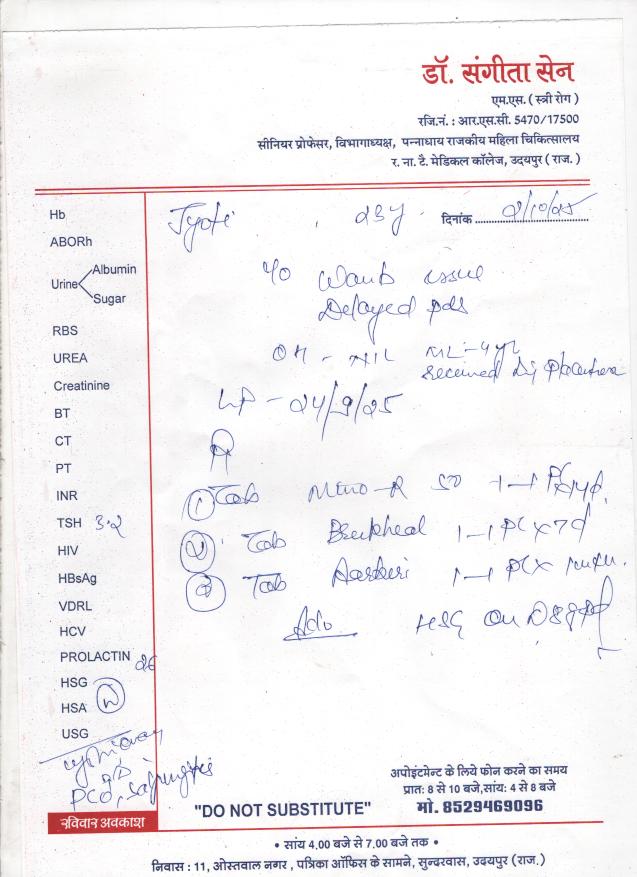 डॉ. संगीता सेन
एम.एस. ( स्त्री रोग )
रजि.नं. : आर.एस.सी. 5470/17500
सीनियर प्रोफेसर, विभागाध्यक्ष, पन्नाधाय राजकीय महिला चिकित्सालय
र. ना. टै. मेडिकल कॉलेज, उदयपुर ( राज. )
Jyoti 23y दिनांक 2/10/25
Hb
ABORh
Urine Albumin
Sugar
RBS
UREA
Creatinine
BT
CT
PT
INR
TSH 3.2
HIV
HBsAg
VDRL
HCV
PROLACTIN 26
HSG
HSA N
USG
PCO, Salpingitis
रविवार अवकाश
Wants issue
Delayed pds
OH - NIL ML - 4yr
received inj placentrex
LP - 24/9/25
1 Tab 1-1
2 Tab 1-1 PC x 7d
3 Tab 1-1 PC x
Adv HSG on
अपोइंटमेन्ट के लिये फोन करने का समय
प्रात: 8 से 10 बजे,सायं: 4 से 8 बजे
"DO NOT SUBSTITUTE" मो. 8529469096
• सांय 4.00 बजे से 7.00 बजे तक •
निवास : 11, ओस्तवाल नगर , पत्रिका ऑफिस के सामने, सुन्दरवास, उदयपुर (राज.)